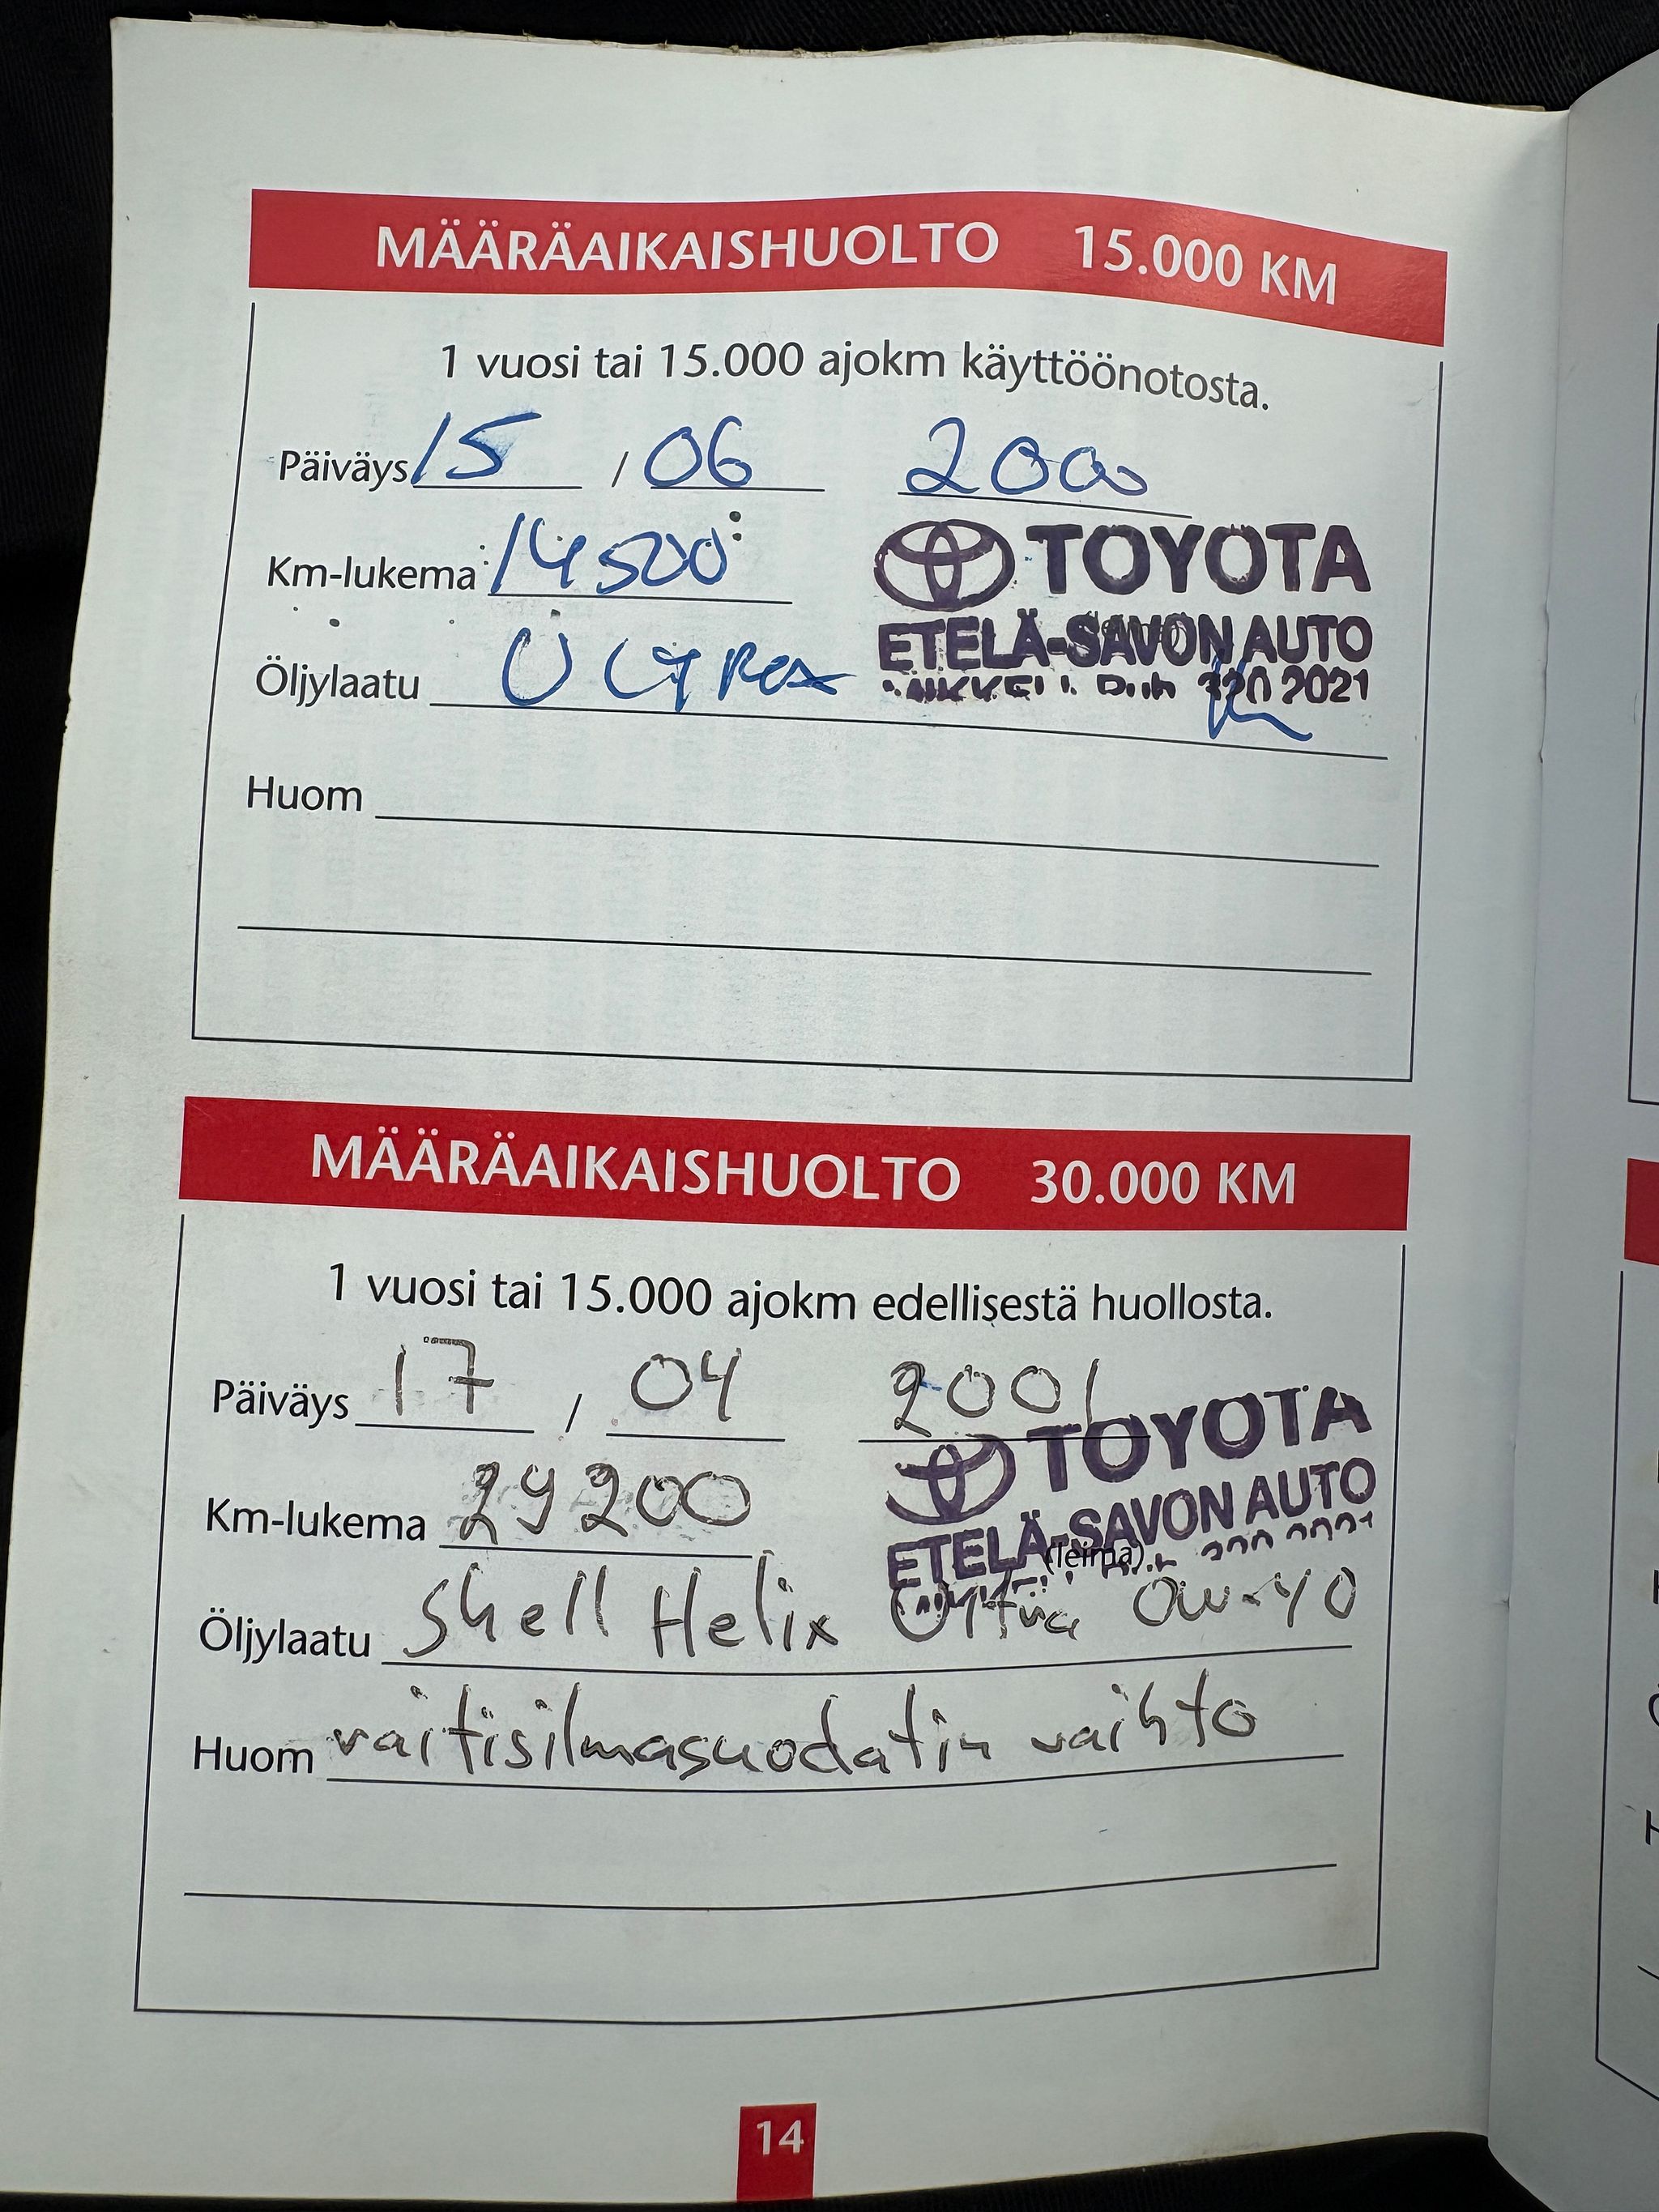 MÄÄRÄAIKAISHUOLTO 15.000 KM
1 vuosi tai 15.000 ajokm käyttöönotosta.
Päiväys 15 / 06 2000
Km-lukema 14500
TOYOTA
ETELÄ-SAVON AUTO
MIKKELI Puh 320 2021
Öljylaatu
Huom
MÄÄRÄAIKAISHUOLTO 30.000 KM
1 vuosi tai 15.000 ajokm edellisestä huollosta.
Päiväys 17 / 04 2001
TOYOTA
Km-lukema 29200
ETELÄ-SAVON AUTO
(leima)
Öljylaatu Shell Helix Ultra 0w-40
Huom raitisilmasuodatin vaihto
14